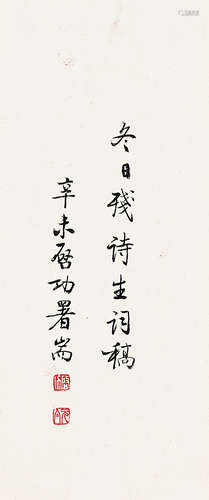 冬日残诗生词稿
辛未启功署耑